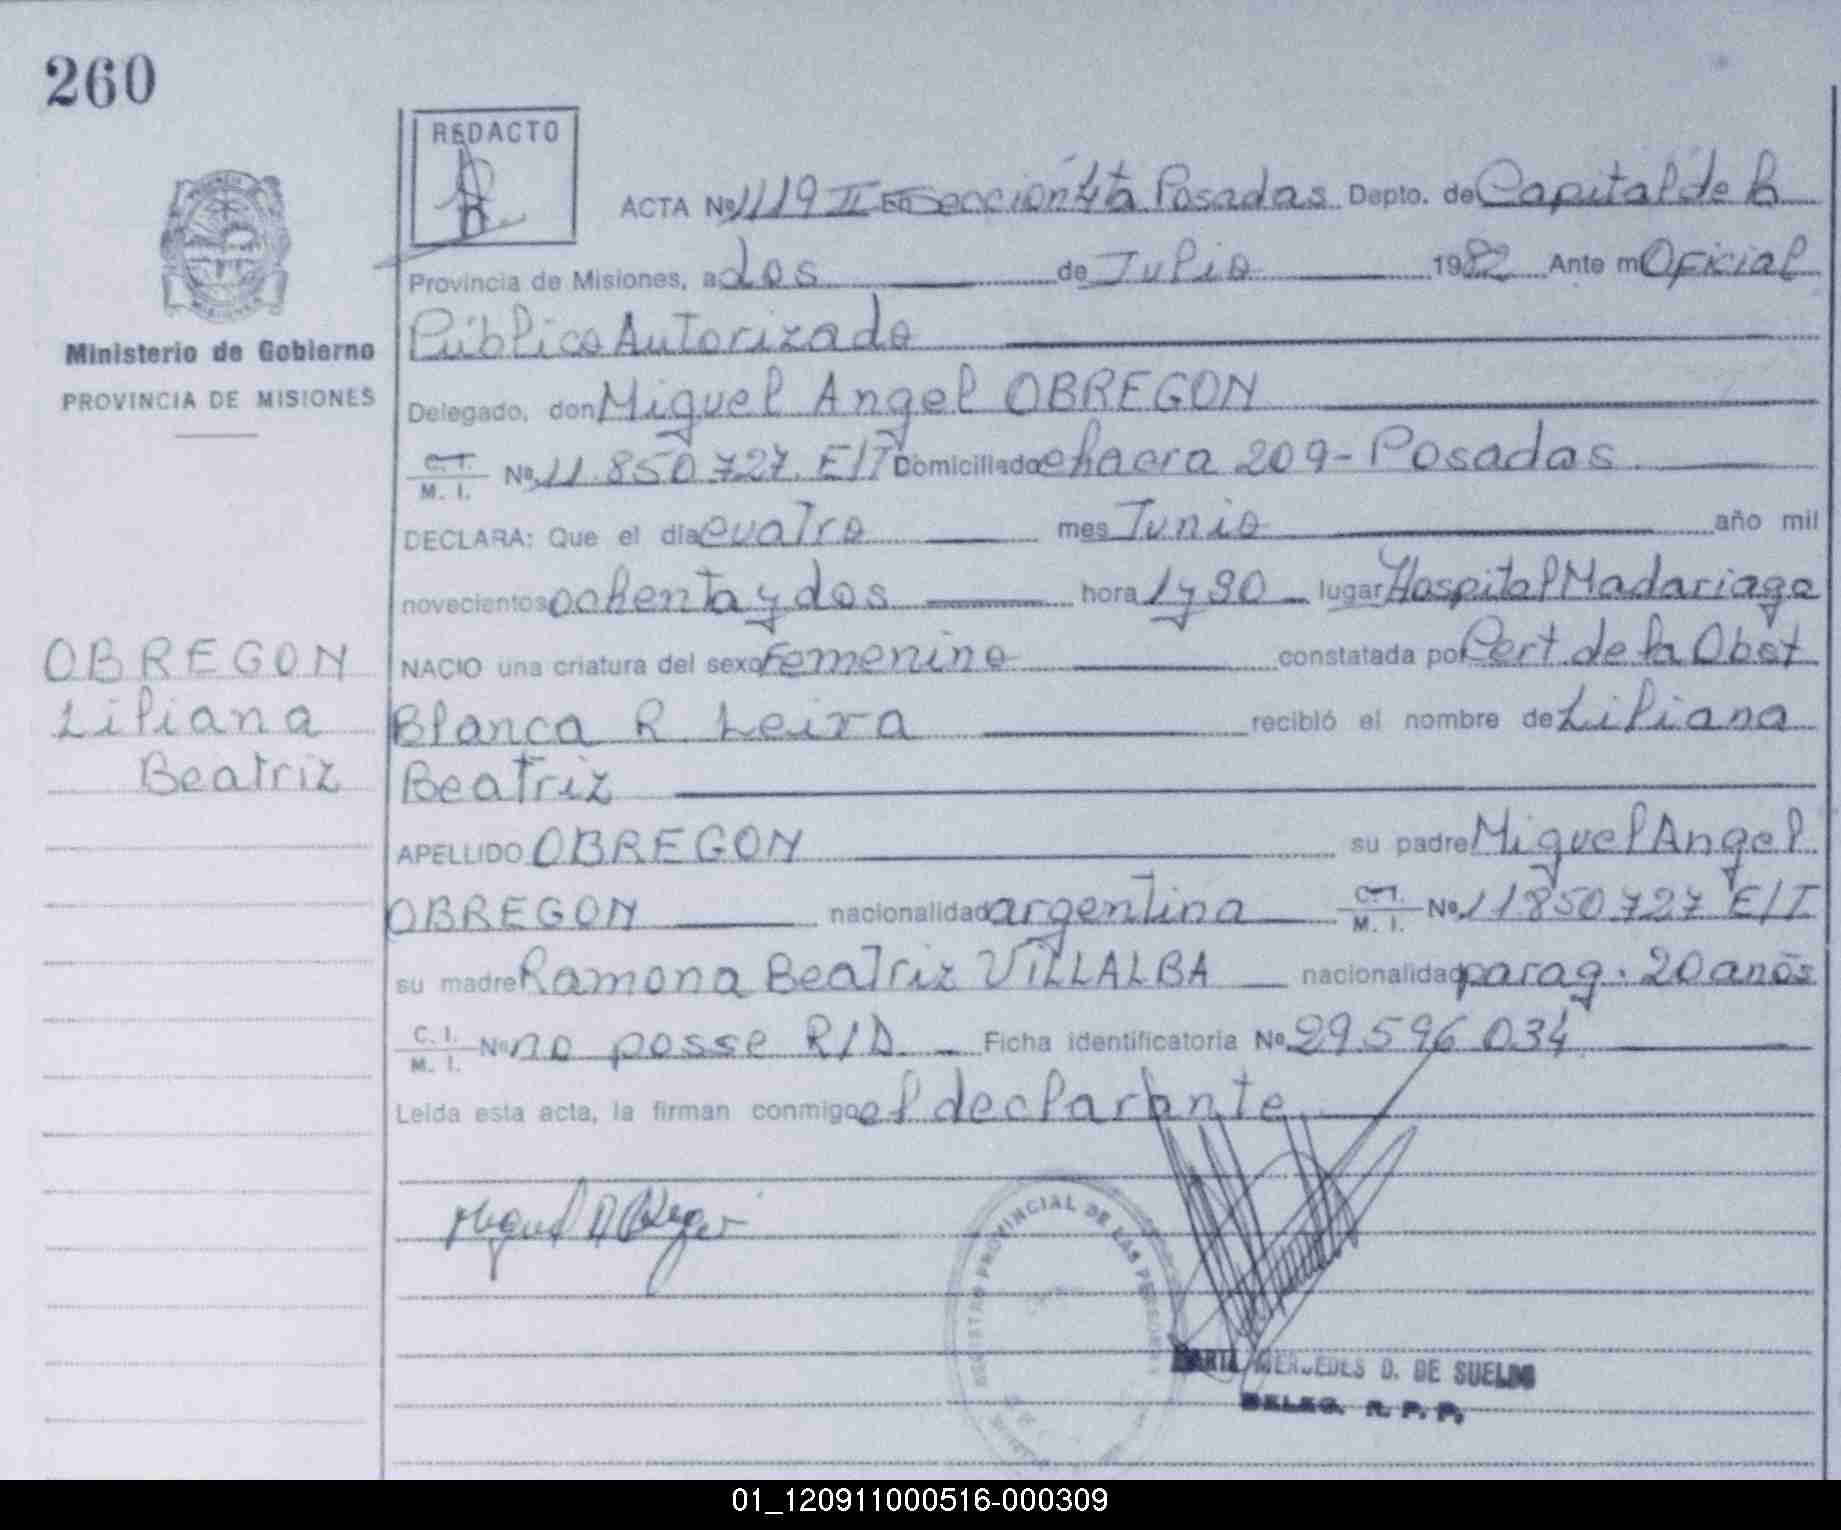 260
REDACTO
ACTA Nº 1119 II En Sección 4ta Posadas Depto. de Capital de la
Provincia de Misiones, a dos de Julio 1982 Ante mí Oficial
Ministerio de Gobierno
PROVINCIA DE MISIONES
Público Autorizado
Delegado, don Miguel Angel OBREGON
C. I. M. I. Nº 11.850.727. E/T Domiciliado chacra 209 - Posadas
DECLARA: Que el día cuatro mes Junio año mil
novecientos ochenta y dos hora 1 y 30 lugar Hospital Madariaga
NACIO una criatura del sexo Femenino constatada por Cert. de la Obst
OBREGON
Liliana
Beatriz
Blanca R. Leiva recibió el nombre de Liliana
Beatriz
APELLIDO OBREGON su padre Miguel Angel
OBREGON nacionalidad argentina C. I. M. I. Nº 11850727 E/T
su madre Ramona Beatriz VILLALBA nacionalidad parag. 20 años
C. I. M. I. Nº no posse R/D. Ficha identificatoria Nº 29.596.034
Leída esta acta, la firman conmigo el declarante
REGISTRO PROVINCIAL DE LAS
MERCEDES D. DE SUELDO
DELEG. R. P. P.
01_120911000516-000309